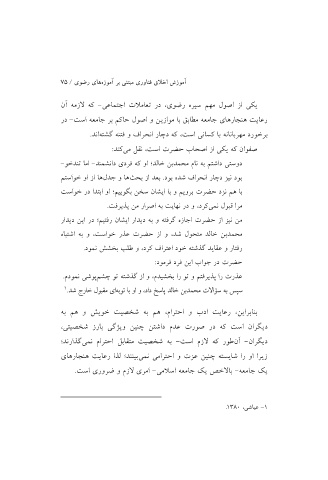 آموزش اخلاق فناوری مبتنی بر آموزه‌های رضوی / ۷۵
یکی از اصول مهم سیره رضوی، در تعاملات اجتماعی- که لازمه آن
رعایت هنجارهای جامعه مطابق با موازین و اصول حاکم بر جامعه است- در
برخورد مهربانانه با کسانی است، که دچار انحراف و فتنه گشته‌اند.
صفوان که یکی از اصحاب حضرت است، نقل می‌کند:
دوستی داشتم به نام محمدبن خالد؛ او که فردی دانشمند- اما تندخو-
بود نیز دچار انحراف شده بود. بعد از بحث‌ها و جدل‌ها از او خواستم
با هم نزد حضرت برویم و با ایشان سخن بگوییم؛ او ابتدا در خواست
مرا قبول نمی‌کرد، و در نهایت به اصرار من پذیرفت.
من نیز از حضرت اجازه گرفته و به دیدار ایشان رفتیم؛ در این دیدار
محمدبن خالد متحول شد، و از حضرت عذر خواست، و به اشتباه
رفتار و عقاید گذشته خود اعتراف کرد، و طلب بخشش نمود.
حضرت در جواب این فرد فرمود:
عذرت را پذیرفتم و تو را بخشیدم، و از گذشته تو چشم‌پوشی نمودم.
سپس به سؤالات محمدبن خالد پاسخ داد، و او با توبه‌ای مقبول خارج شد.۱
بنابراین، رعایت ادب و احترام، هم به شخصیت خویش و هم به
دیگران است که در صورت عدم داشتن چنین ویژگی بارز شخصیتی،
دیگران- آن‌طور که لازم است- به شخصیت متقابل احترام نمی‌گذارند؛
زیرا او را شایسته چنین عزت و احترامی نمی‌بینند؛ لذا رعایت هنجارهای
یک جامعه- بالاخص یک جامعه اسلامی- امری لازم و ضروری است.
۱- عیاشی، ۱۳۸۰.